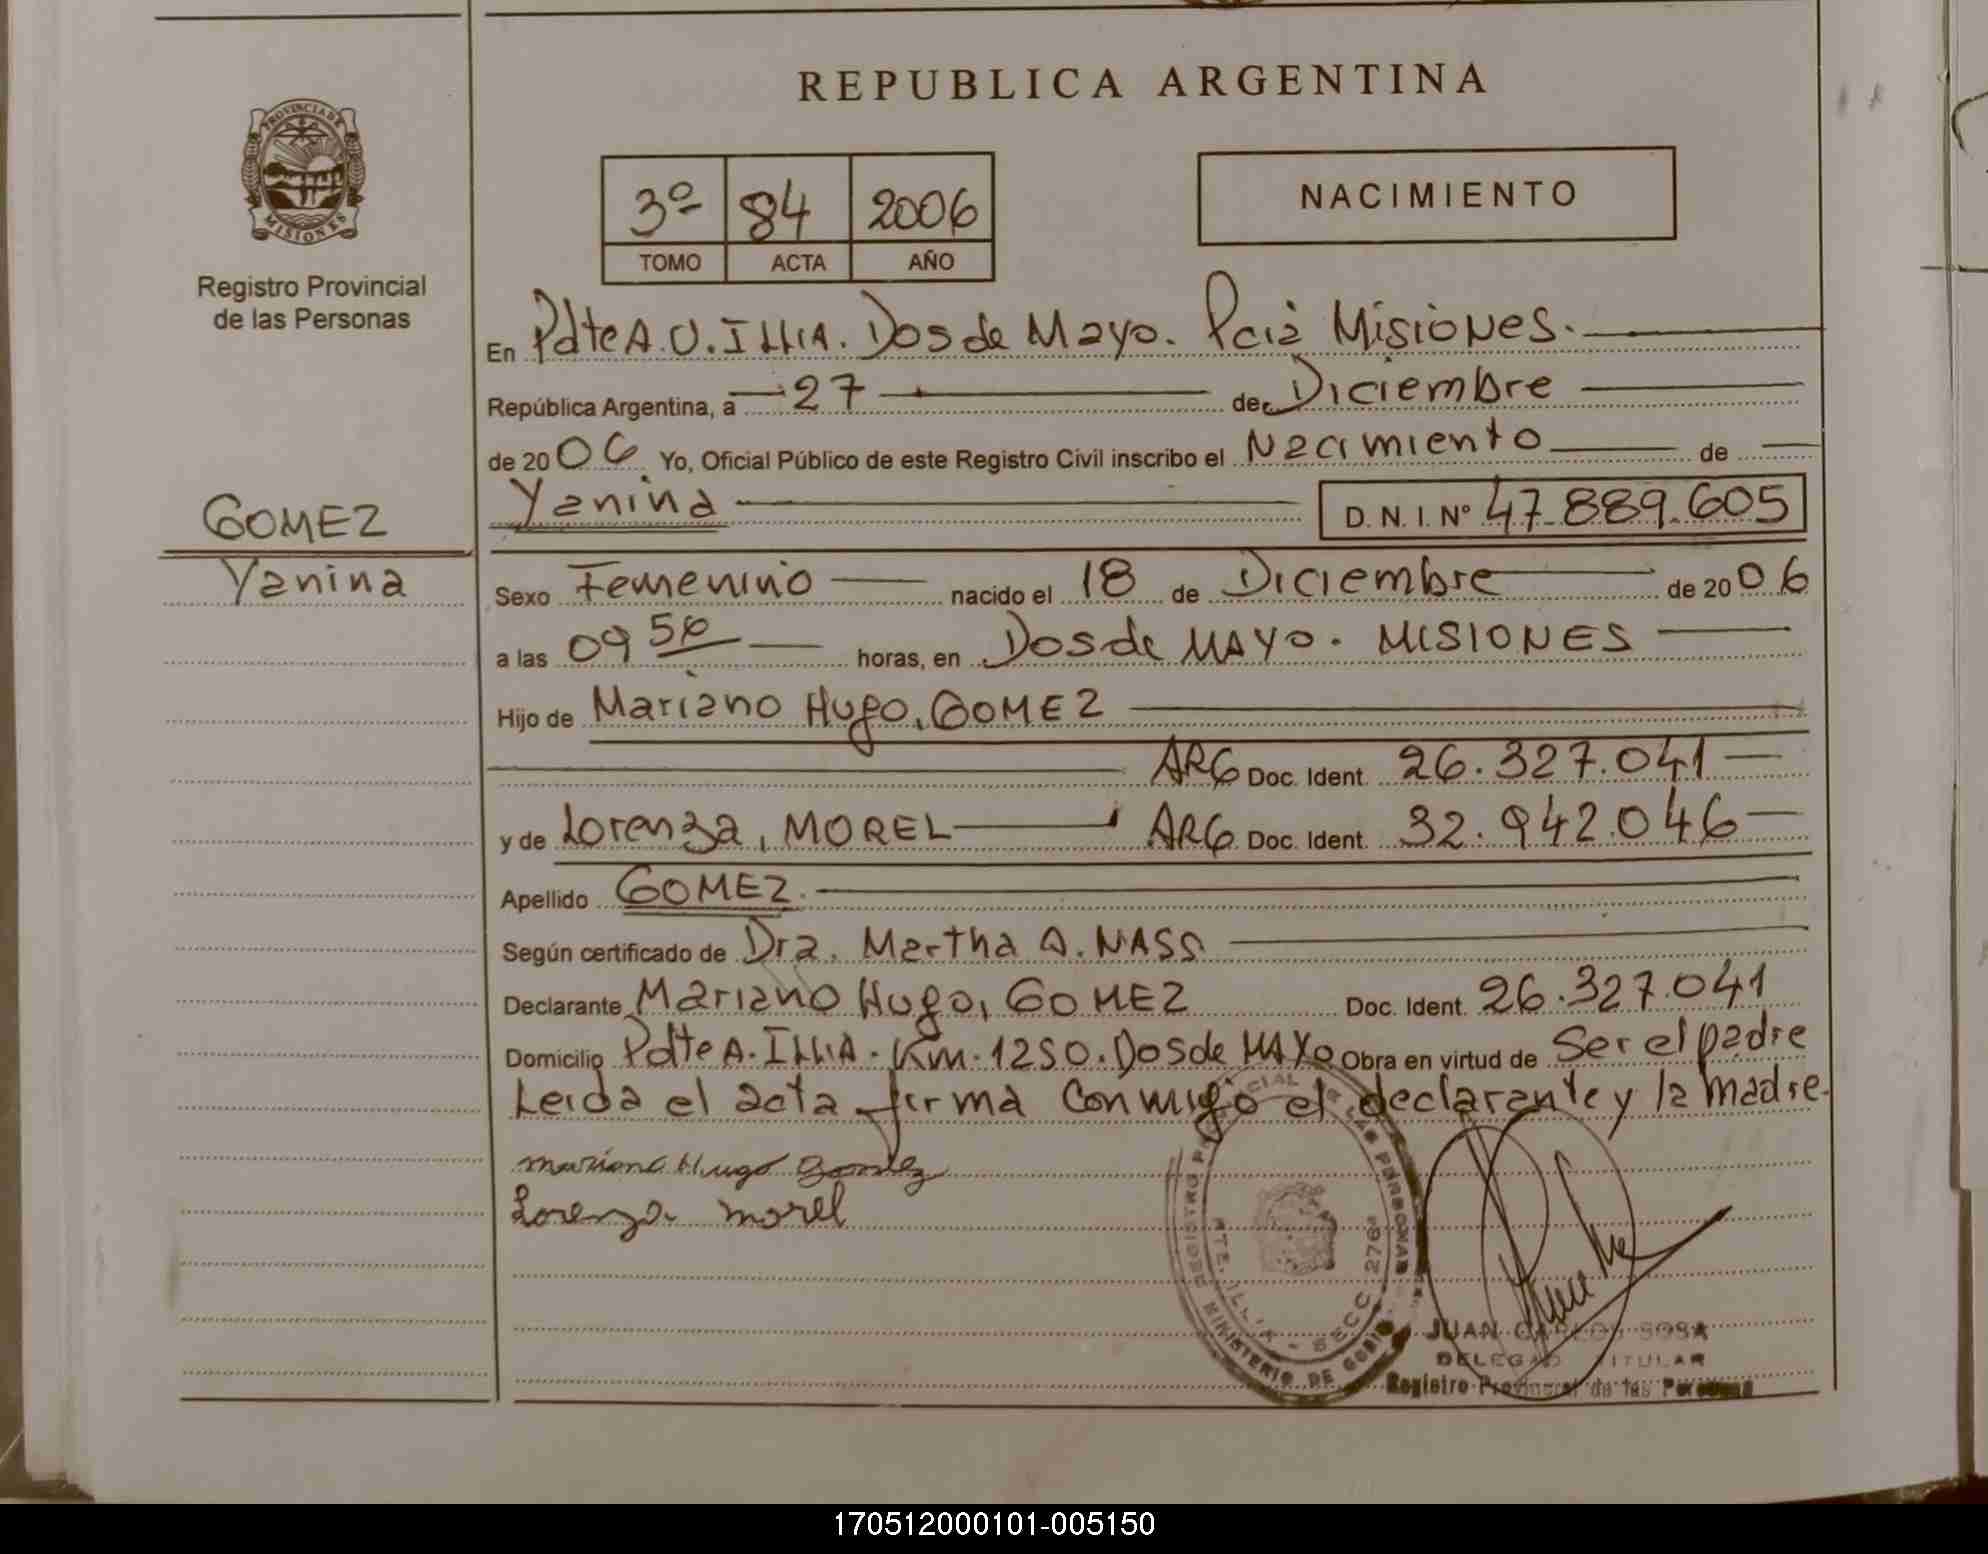 REPUBLICA ARGENTINA
PROVINCIA DE
MISIONES
Registro Provincial
de las Personas
3º 84 2006
TOMO ACTA AÑO
NACIMIENTO
En Pdte A. U. ILLIA. Dos de Mayo. Pcia Misiones.
República Argentina, a 27 de Diciembre
de 2006 Yo, Oficial Público de este Registro Civil inscribo el Nacimiento de
GOMEZ
Yanina
Yanina D. N. I. Nº 47.889.605
Sexo Femenino nacido el 18 de Diciembre de 2006
a las 09 56 horas, en Dos de MAYO. MISIONES
Hijo de Mariano Hugo, GOMEZ
ARG Doc. Ident. 26.327.041
y de Lorenza, MOREL ARG Doc. Ident. 32.942.046
Apellido GOMEZ.
Según certificado de Dra. Martha A. NASS
Declarante Mariano Hugo, GOMEZ Doc. Ident. 26.327.041
Domicilio Pdte A. ILLIA. Km. 1250. Dos de MAYO Obra en virtud de Ser el padre
Leida el acta firma conmigo el declarante y la madre.
Mariano Hugo Gomez
Lorenza morel
REGISTRO PROVINCIAL DE LAS PERSONAS
PTE. ILLIA - SECC. 276ª
MINISTERIO DE GOBIERNO
JUAN CARLOS SOSA
DELEGADO TITULAR
Registro Provincial de las Personas
170512000101-005150